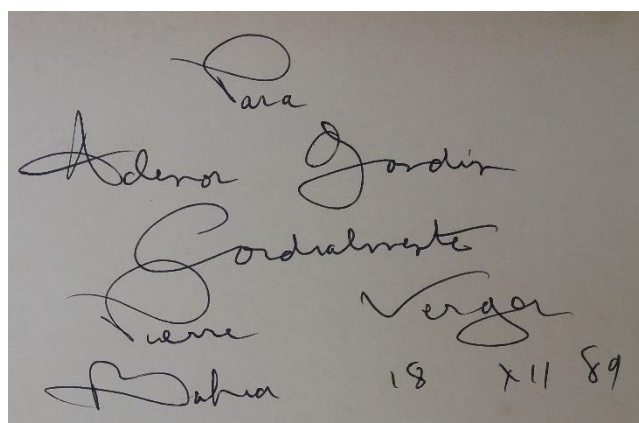 Para
Adenor Gondim
Cordialmente
Pierre Verger
Bahia 18 XII 89